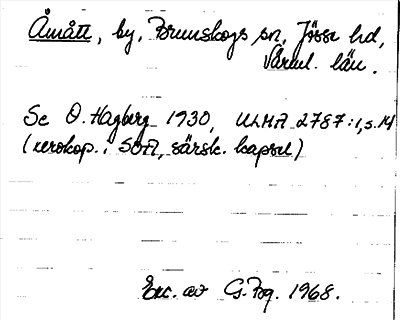 Åmått, by, Brunskogs sn, Jösse hd,
Värml. län.
Se O. Hagberg 1930, ULMA 2787:1, s. 14
(xerokop. i SOA, särsk. kapsel)
Exc. av G. Bg. 1968.